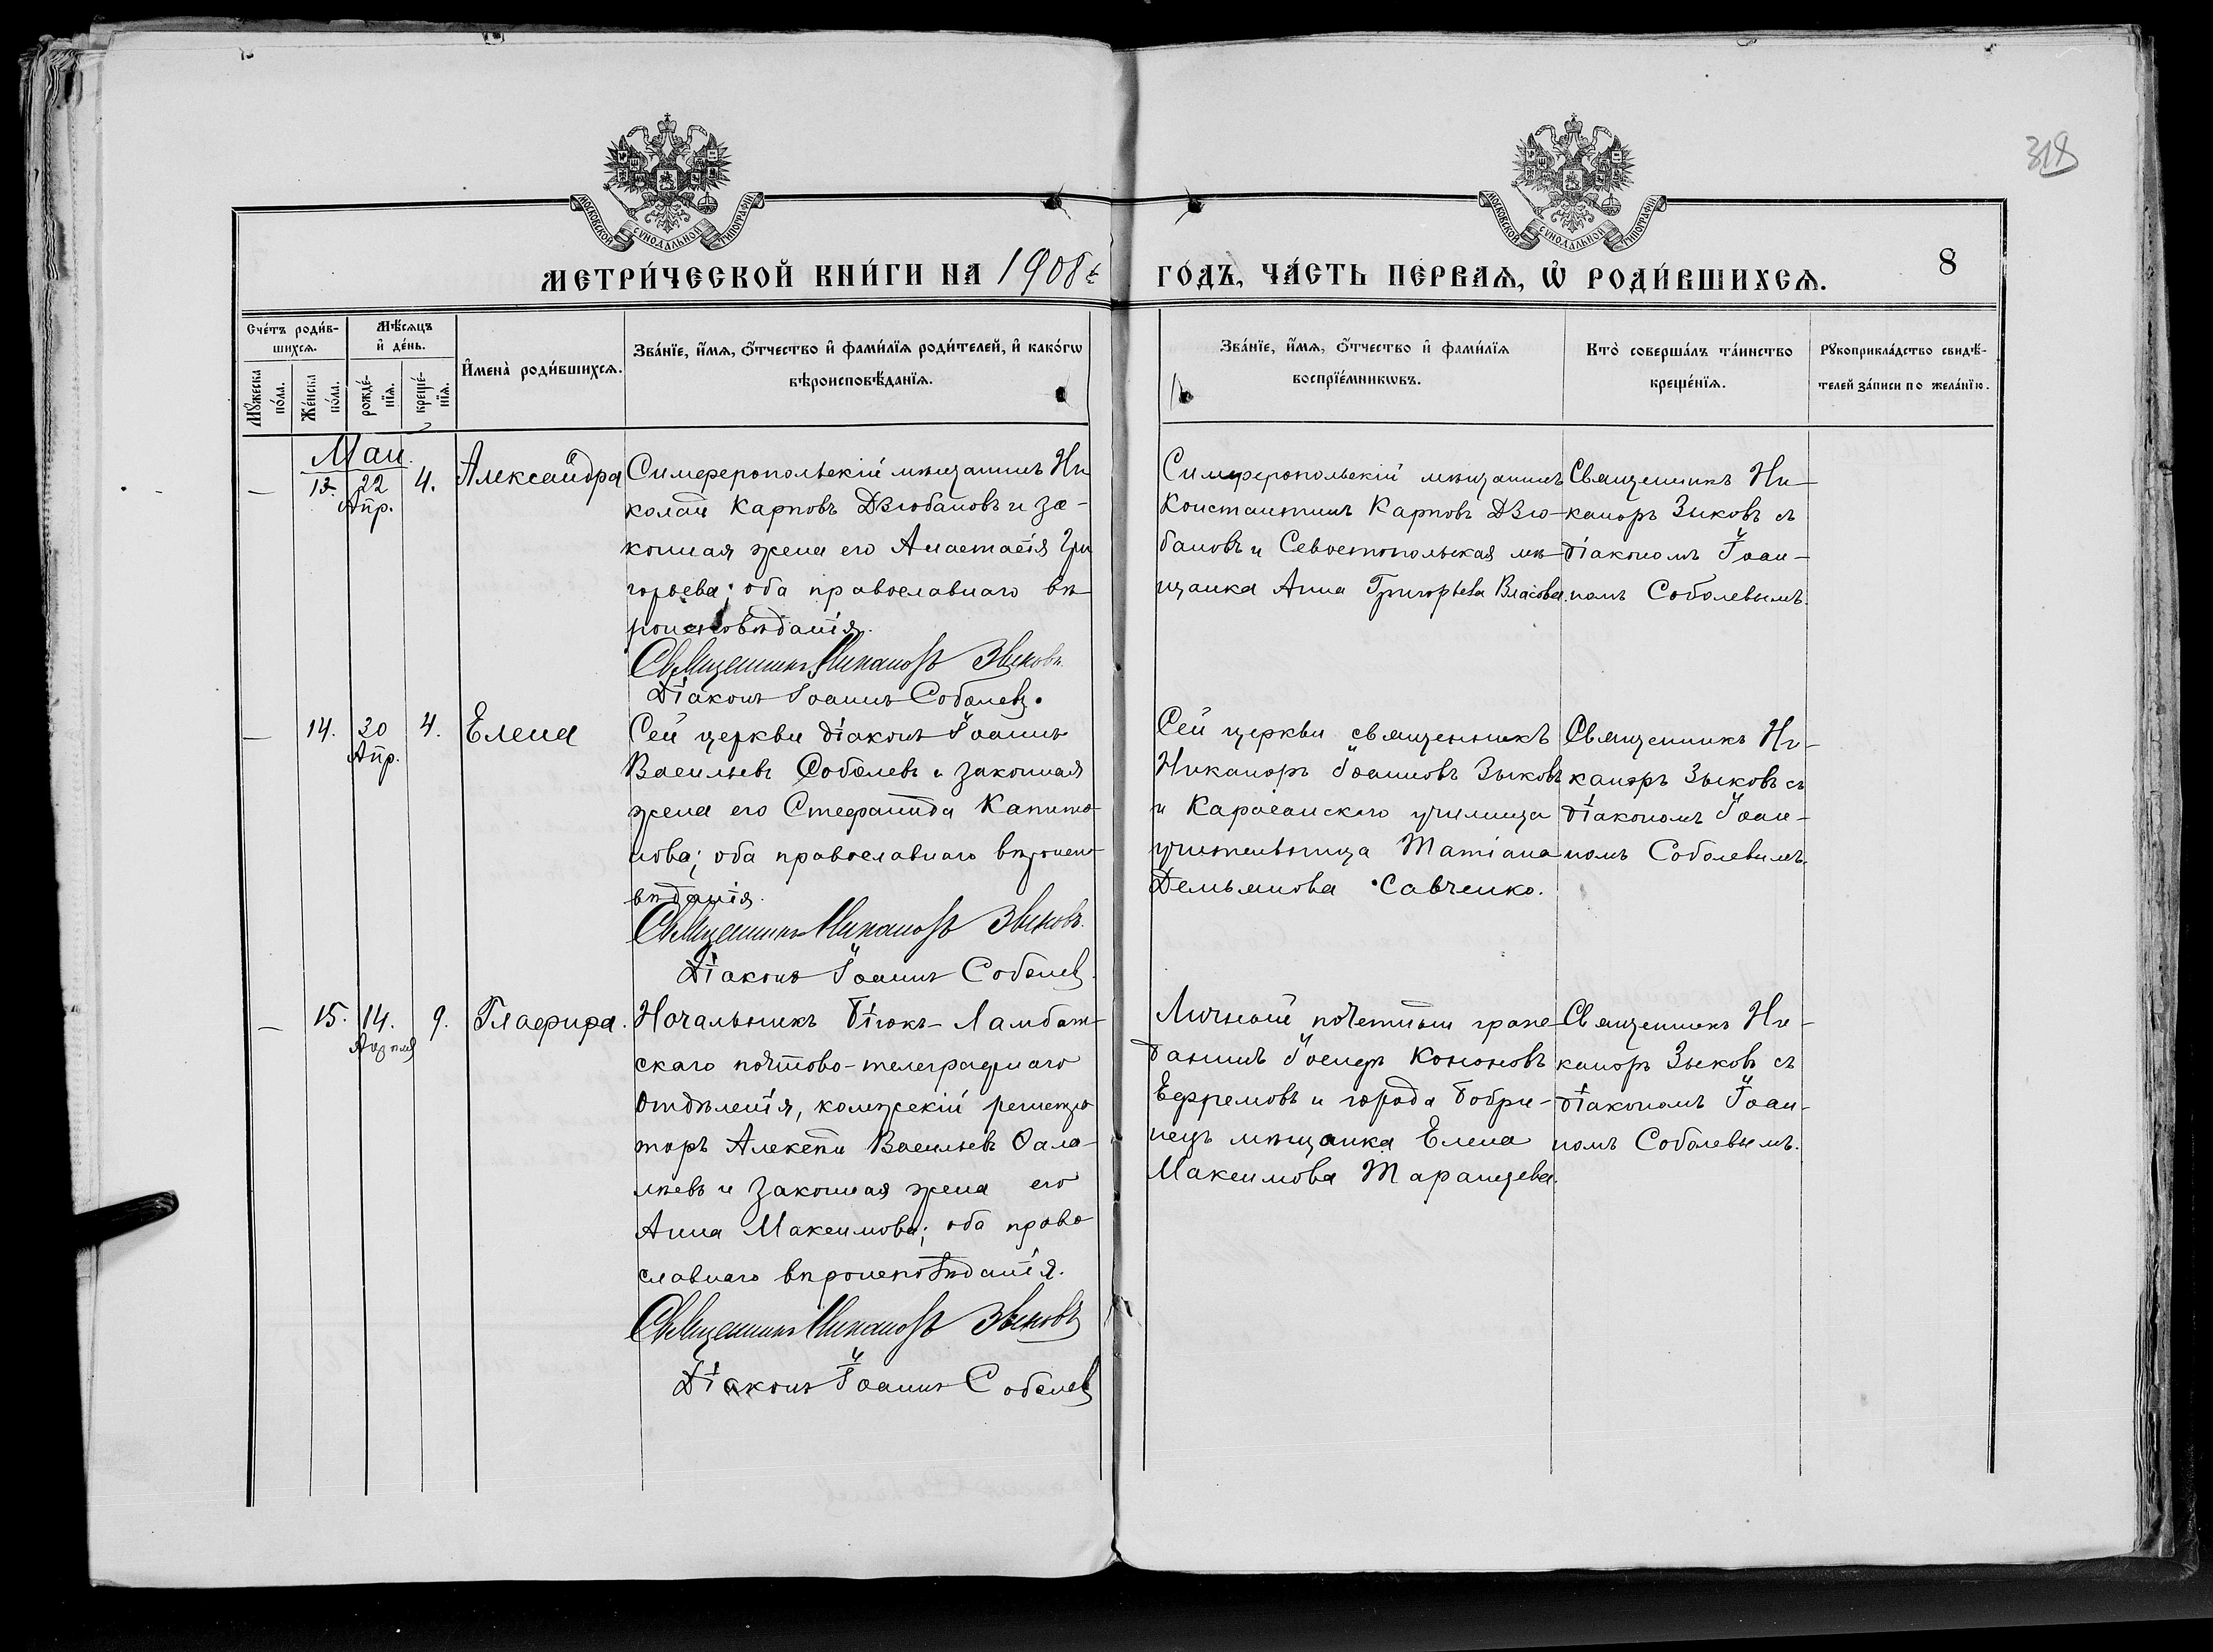 318
МОСКОВСКОЙ СѴНОДАЛЬНОЙ ТИПОГРАФІИ
МОСКОВСКОЙ СѴНОДАЛЬНОЙ ТИПОГРАФІИ
МЕТРИ́ЧЕСКОЙ КНИ́ГИ НА 1908 г.
ГО́ДЪ, ЧА́СТЬ ПЕ́РВАѦ, Ѡ҆ РОДИ́ВШИХСѦ.
8
Сче́тъ роди́в-
шихсѧ.
Мꙋ́жеска
по́ла.
Же́нска
по́ла.
Мѣ́сѧцъ
и҆ де́нь.
рожде́-
нїѧ.
креще́-
нїѧ.
И҆мена̀ роди́вшихсѧ.
Зва́нїе, и҆́мѧ, ѻ҆́тчество и҆ фами́лїѧ роди́телей, и҆ како́гѡ
вѣроисповѣ́данїѧ.
Зва́нїе, и҆́мѧ, ѻ҆́тчество и҆ фами́лїѧ
воспрїе́мникѡвъ.
Кто̀ соверша́лъ та́инство
креще́нїѧ.
Рꙋкоприкла́дство свидѣ́-
телей за́писи по жела́нїю.
Маи.
— 13. 22 4. Александра
Апр.
Симферопольскій мѣщанинъ Ни
колай Карповъ Дзюбановъ и за-
конная жена его Анастасія Гри
горьева; оба православнаго вѣ
роисповѣданія.
Священникъ Никаноръ Зыковъ.
Діаконъ Іоаннъ Соболевъ.
Симферопольскій мѣщанинъ
Константинъ Карповъ Дзю-
бановъ и Севостопольская мѣ
щанка Анна Григорьева Власова.
Священникъ Ни-
каноръ Зыковъ съ
діакономъ Іоан-
номъ Соболевымъ.
— 14. 30 4. Елена
Апр.
Сей церкви діаконъ Іоаннъ
Васильевъ Соболевъ и законная
жена его Стефанида Капито-
нова; оба православнаго вѣроиспо
вѣданія.
Священникъ Никаноръ Зыковъ.
Діаконъ Іоаннъ Соболевъ.
Сей церкви священникъ
Никаноръ Іоанновъ Зыковъ
и Карасанскаго училища
учительница Татіана
Демьянова Савченко.
Священникъ Ни-
каноръ Зыковъ съ
діакономъ Іоан-
номъ Соболевымъ.
— 15. 14. 9. Глафира.
Апреля
Начальникъ Біюкъ-Ламбат-
скаго почтово-телеграфнаго
Отдѣленія, колежскій регистра
торъ Алексѣй Васильевъ Фала-
лѣевъ и законная жена его
Анна Максимова; оба право
славнаго вѣроисповѣданія.
Священникъ Никаноръ Зыковъ
Діаконъ Іоаннъ Соболевъ
Личный почетный граж-
данинъ Іосифъ Кононовъ
Ефремовъ и города Бобри-
нецъ мѣщанка Елена
Максимова Таранцева.
Священникъ Ни-
каноръ Зыковъ съ
діакономъ Іоан-
номъ Соболевымъ.